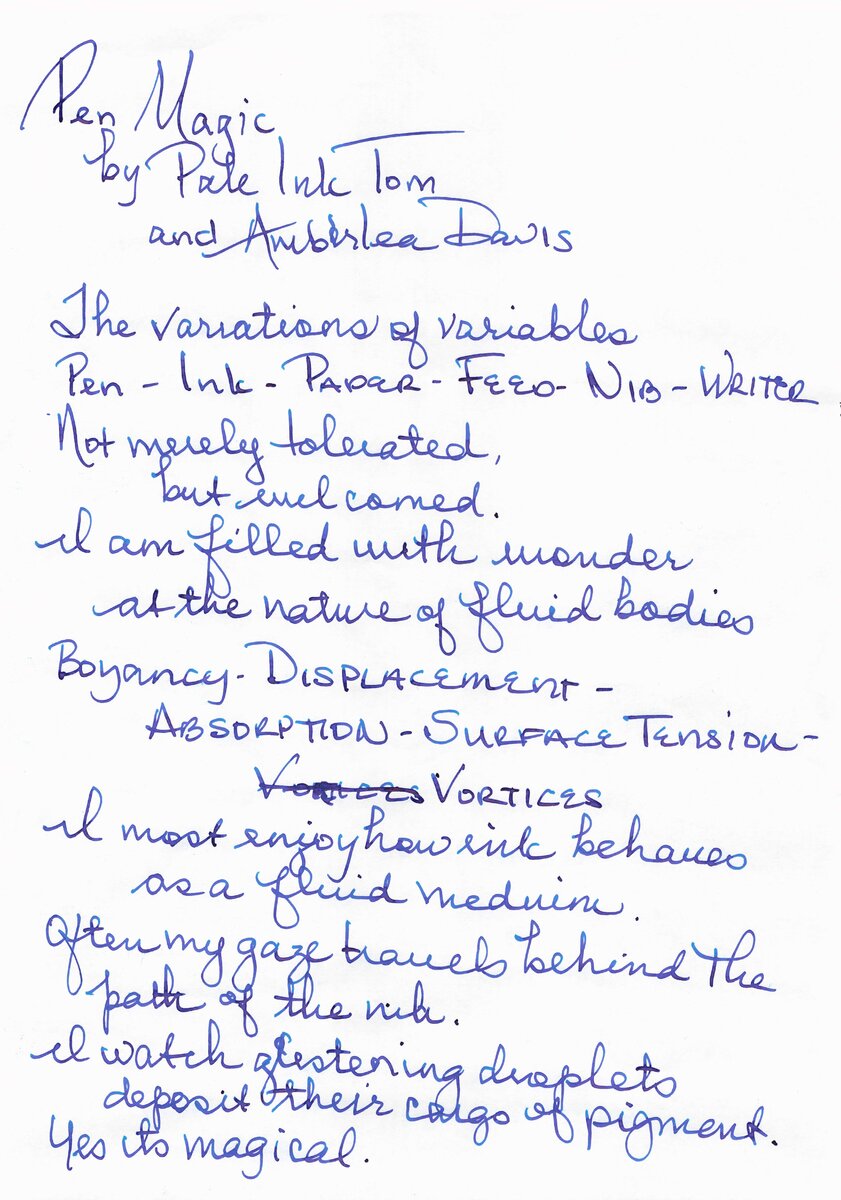 Pen Magic
by Pale Ink Tom
and Amberlea Davis
The variations of variables
Pen - Ink - PAPER - FEED - NIB - WRITER
Not merely tolerated,
but welcomed.
I am filled with wonder
at the nature of fluid bodies
Boyancy - DISPLACEMENT -
ABSORPTION - SURFACE TENSION -
VORTICES VORTICES
I most enjoy how ink behaves
as a fluid medium.
Often my gaze travels behind the
path of the nib.
I watch glistening droplets
deposit their cargo of pigment.
Yes its magical.